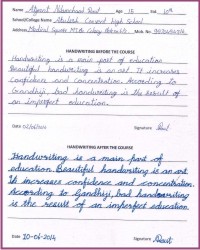 Name: Nilkanth Raut Age: 15 Std: 10th
School/College Name: Convent High School
Address: Medical Square Mob. No.
HANDWRITING BEFORE THE COURSE
Handwriting is a main part of education
Beautiful handwriting is an art. It increases
confidence and concentration. According to
Grandhiji, bad handwriting is the result of
an imperfect education.
Date: Signature Raut
HANDWRITING AFTER THE COURSE
Handwriting is a main part of
education. Beautiful handwriting is an art.
It increases confidence and concentration.
According to Gandhiji, bad handwriting
is the result of an imperfect education.
Date 10-06-2014 Signature Raut